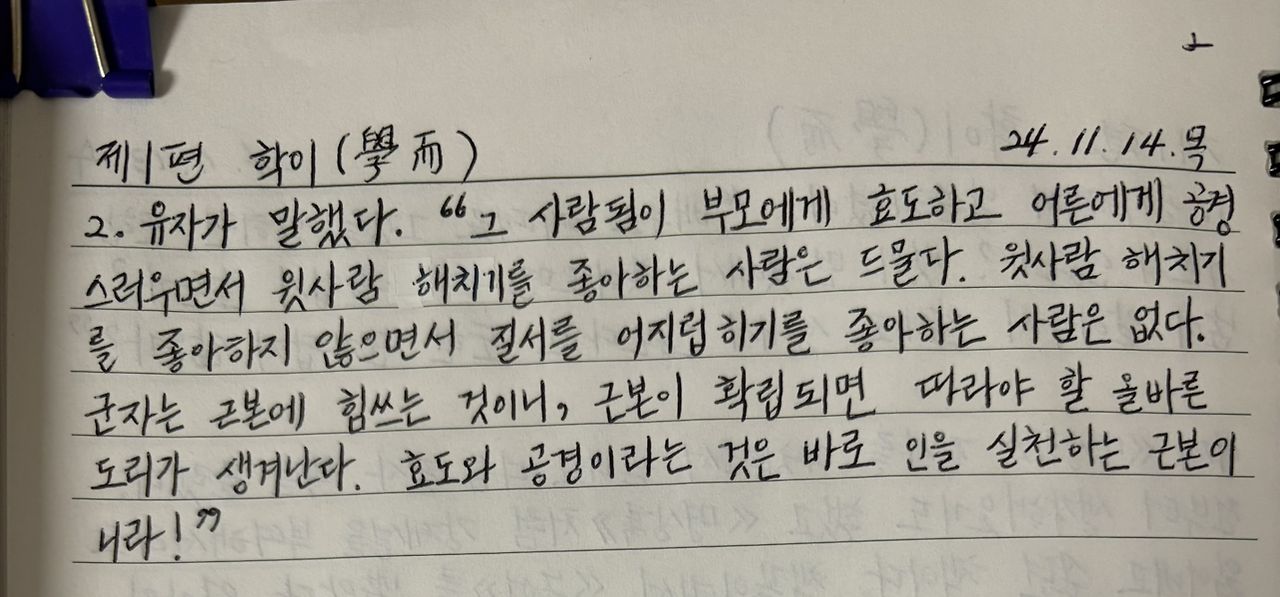 2
제1편 학이(學而) 24.11.14.목
2. 유자가 말했다. "그 사람됨이 부모에게 효도하고 어른에게 공경
스러우면서 윗사람 해치기를 좋아하는 사람은 드물다. 윗사람 해치기
를 좋아하지 않으면서 질서를 어지럽히기를 좋아하는 사람은 없다.
군자는 근본에 힘쓰는 것이니, 근본이 확립되면 따라야 할 올바른
도리가 생겨난다. 효도와 공경이라는 것은 바로 인을 실천하는 근본이
니라!"